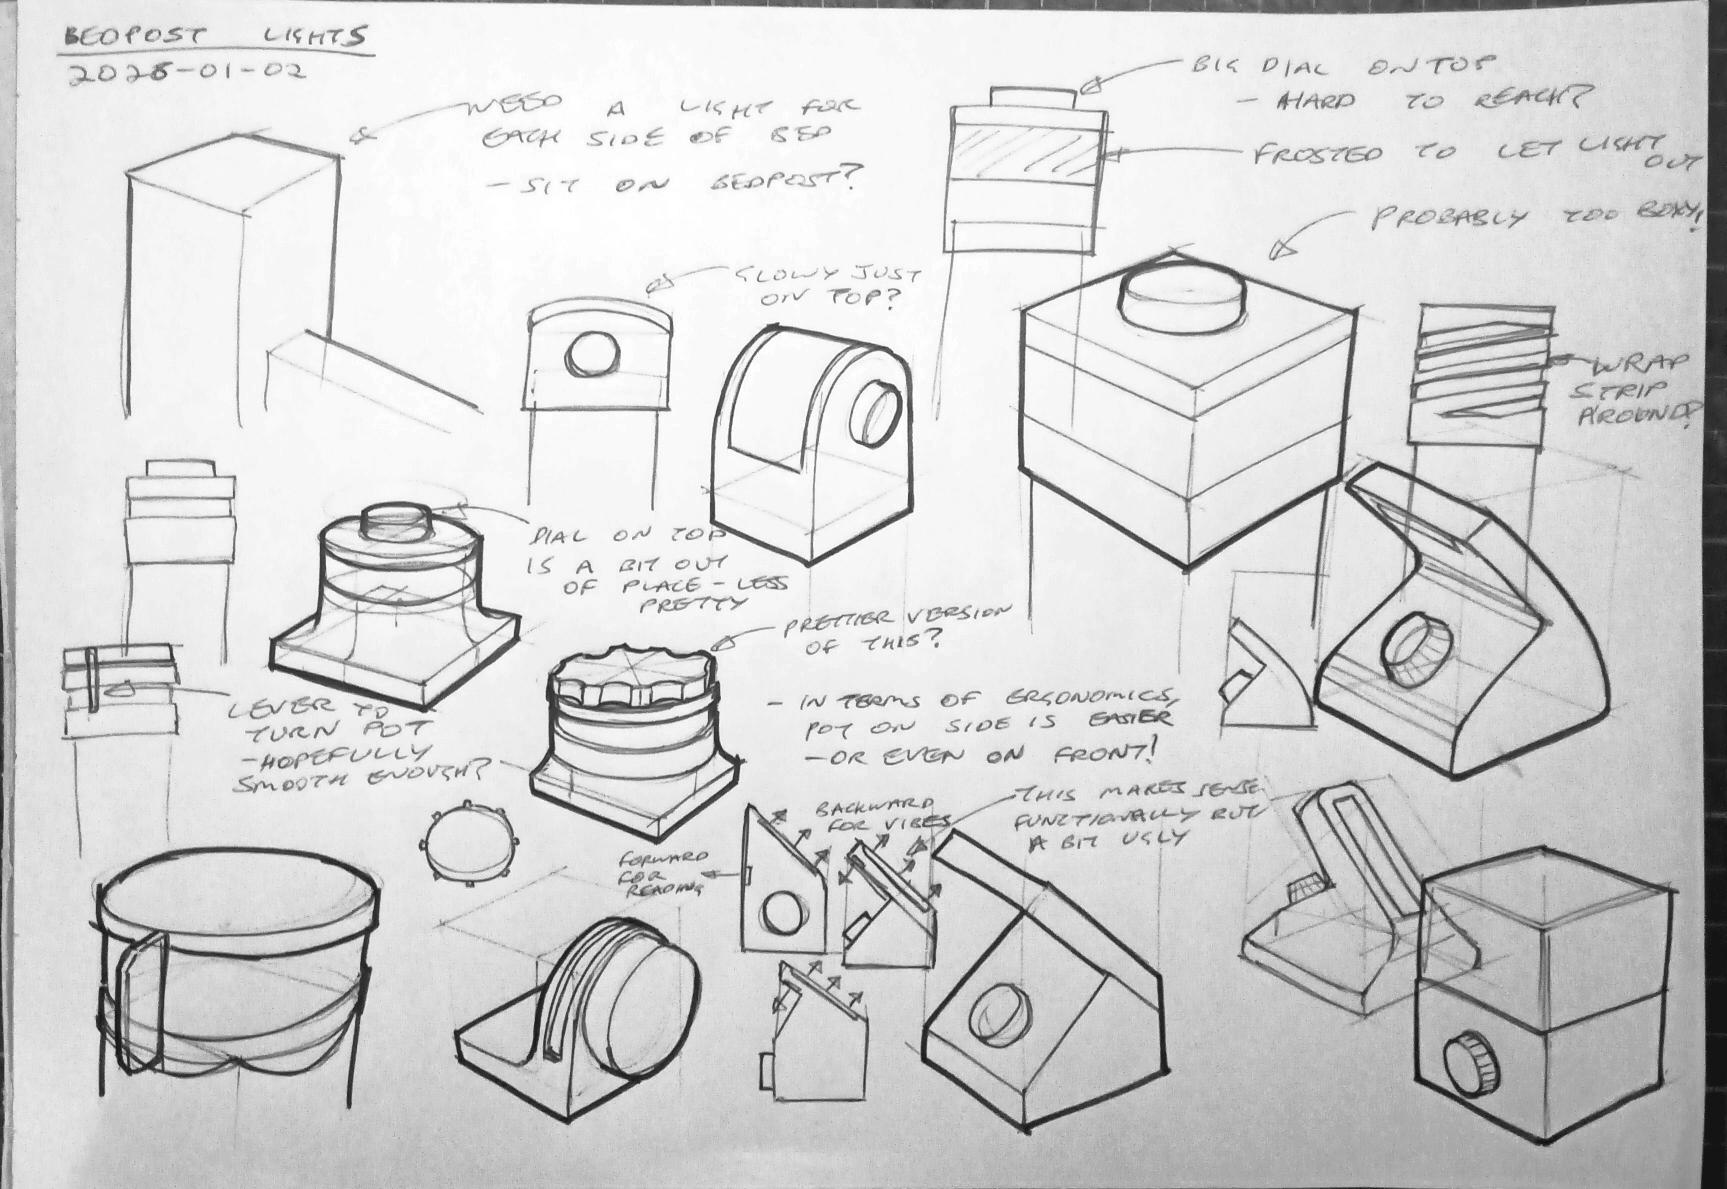 BEDPOST LIGHTS
2026-01-02
NEED A LIGHT FOR
EACH SIDE OF BED
- SIT ON BEDPOST?
BIG DIAL ON TOP
- HARD TO REACH?
FROSTED TO LET LIGHT
OUT
PROBABLY TOO BOXY!
GLOWY JUST
ON TOP?
WRAP
STRIP
AROUND?
DIAL ON TOP
IS A BIT OUT
OF PLACE - LESS
PRETTY
PRETTIER VERSION
OF THIS?
LEVER TO
TURN POT
- HOPEFULLY
SMOOTH ENOUGH?
- IN TERMS OF ERGONOMICS,
POT ON SIDE IS EASIER
- OR EVEN ON FRONT!
BACKWARD
FOR VIBES
THIS MAKES SENSE
FUNCTIONALLY BUT
A BIT UGLY
FORWARD
FOR
READING